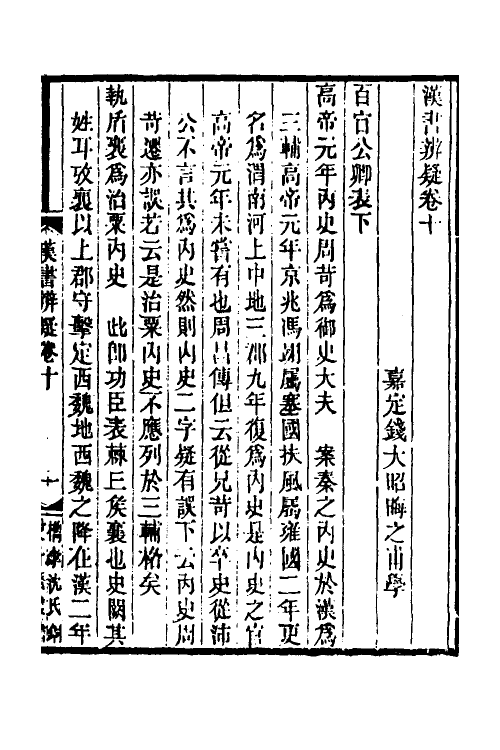 漢書辨疑卷十
嘉定錢大昭晦之甫學
百官公卿表下
高帝元年內史周苛爲御史大夫　案秦之內史於漢爲
三輔高帝元年京兆馮翊屬塞國扶風屬雍國二年更
名爲渭南河上中地三郡九年復爲內史是內史之官
高帝元年未嘗有也周昌傳但云從兄苛以卒史從沛
公不言其爲內史然則內史二字疑有誤下云內史周
苛遷亦誤若云是治粟內史不應列於三輔格矣
執盾襄爲治粟內史　此卽功臣表棘丘矦襄也史闕其
姓耳攷襄以上郡守擊定西魏地西魏之降在漢二年
漢書辨疑卷十
十
沈氏